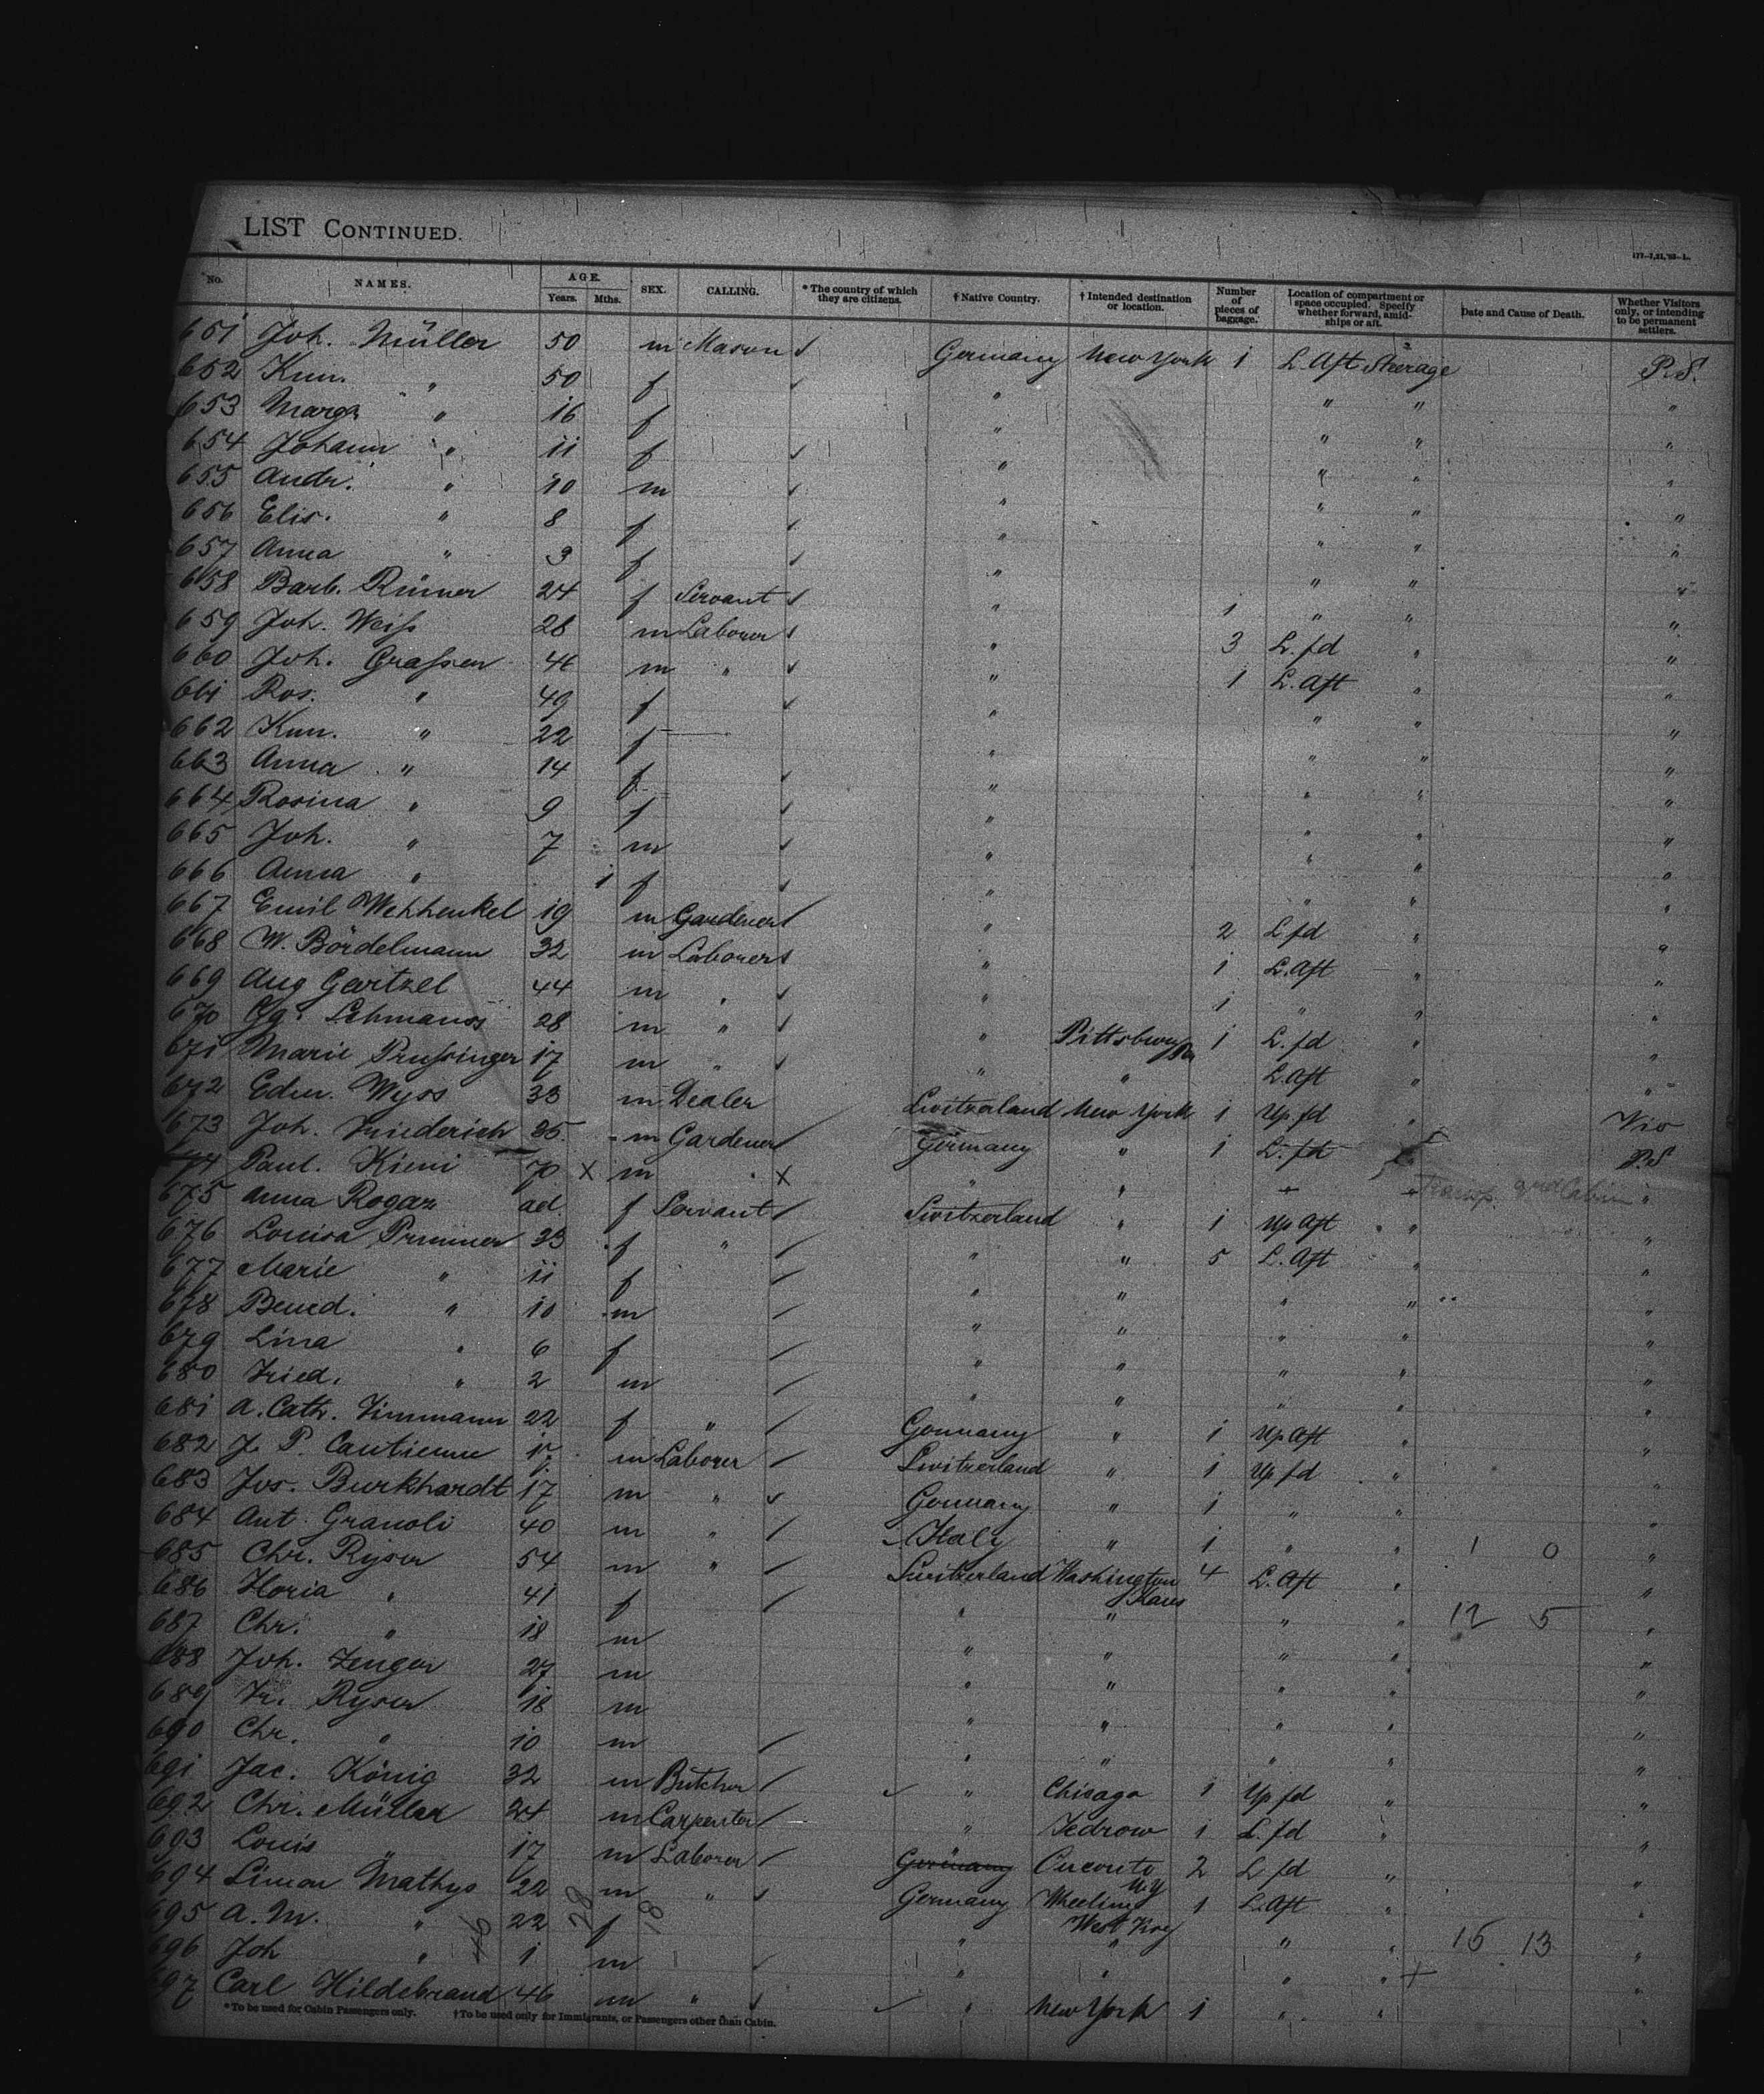 LIST CONTINUED.
177-7,21,'93-L.
No. NAMES. AGE. Years. Mths. SEX. CALLING. * The country of which they are citizens. † Native Country. † Intended destination or location. Number of pieces of baggage. Location of compartment or space occupied. Specify whether forward, amidships or aft. Date and Cause of Death. Whether Visitors only, or intending to be permanent settlers.
651 Joh. Müller 50 m Mason Germany New York 1 L. Aft Steerage P.S.
652 Kun. " 50 f " " " "
653 Marga " 16 f " " " "
654 Johann " 11 f " " " "
655 Andr. " 10 m " " " "
656 Elis. " 8 f " " " "
657 Anna " 3 f " " " "
658 Barb. 24 f Servant " 1 " " "
659 Joh. Weiss 28 m Laborer " 3 L. fd " "
660 Joh. Grassen m " " 1 L. Aft " "
661 Ros. " 49 f " " " "
662 Kun. " 22 f " " " "
663 Anna " 14 f " " " "
664 Rosina " 9 f " " " "
665 Joh. " 7 m " " " "
666 Anna " 1 f " " " "
667 Emil Wehhenkel 19 m Gardener " 2 L fd " "
668 W. Bördelmann 32 m Laborer " 1 L. Aft " "
669 Aug Geritzel 44 m " " 1 " " "
670 Gg. Lehmanns 28 m " " Pittsburg Pa 1 L. fd " "
671 Marie Prussinger 17 m " " " L. Aft " "
672 Edm. Wyss 33 m Dealer Switzerland New York 1 Up fd " Vis
673 Joh. Friederich 35 m Gardener Germany " 1 L. fd P.S
674 Paul. Kieni 70 X m " X " " " Transp. 2nd Cabin "
675 Anna Rogaz ad. f Servant Switzerland " 1 Up Aft " "
676 Louisa Prminer 33 f " " " 5 L. Aft " "
677 Marie " 11 f " " " " "
678 Bened. " 10 m " " " " "
679 Lina " 6 f " " " " "
680 Fried. " 2 m " " " " "
681 A. Cath. Zimmann 22 f " Germany " 1 Up Aft " "
682 J. P. Cantienne 17 m Laborer Switzerland " 1 Up fd " "
683 Jos. Burkhardt 17 m " Germany " 1 " " "
684 Ant. Granoli 40 m " Italy " 1 " " 1 0 "
685 Chr. Ryser 54 m " Switzerland Washington Kans 4 L. Aft " "
686 Floria " 41 f " " " " 12 5 "
687 Chr. " 18 m " " " " "
688 Joh. Zenger 27 m " " " " "
689 Fr. Ryser 18 m " " " " "
690 Chr. " 10 m " " " " "
691 Jac. König 32 m Butcher " Chicago 1 Up fd " "
692 Chr. Müller 24 m Carpenter " Tedrow 1 L. fd " "
693 Louis " 17 m Laborer Germany N.Y 2 L fd " "
694 Simon Mathys 22 m " Germany Wheeling West Virg 1 L. Aft " "
695 A. M. " 22 f " " " " 15 13 "
696 Joh " 1 m " " " " "
697 Carl Hildebrand 46 m " " New York 1 " " "
46 28 18
* To be used for Cabin Passengers only. † To be used only for Immigrants, or Passengers other than Cabin.